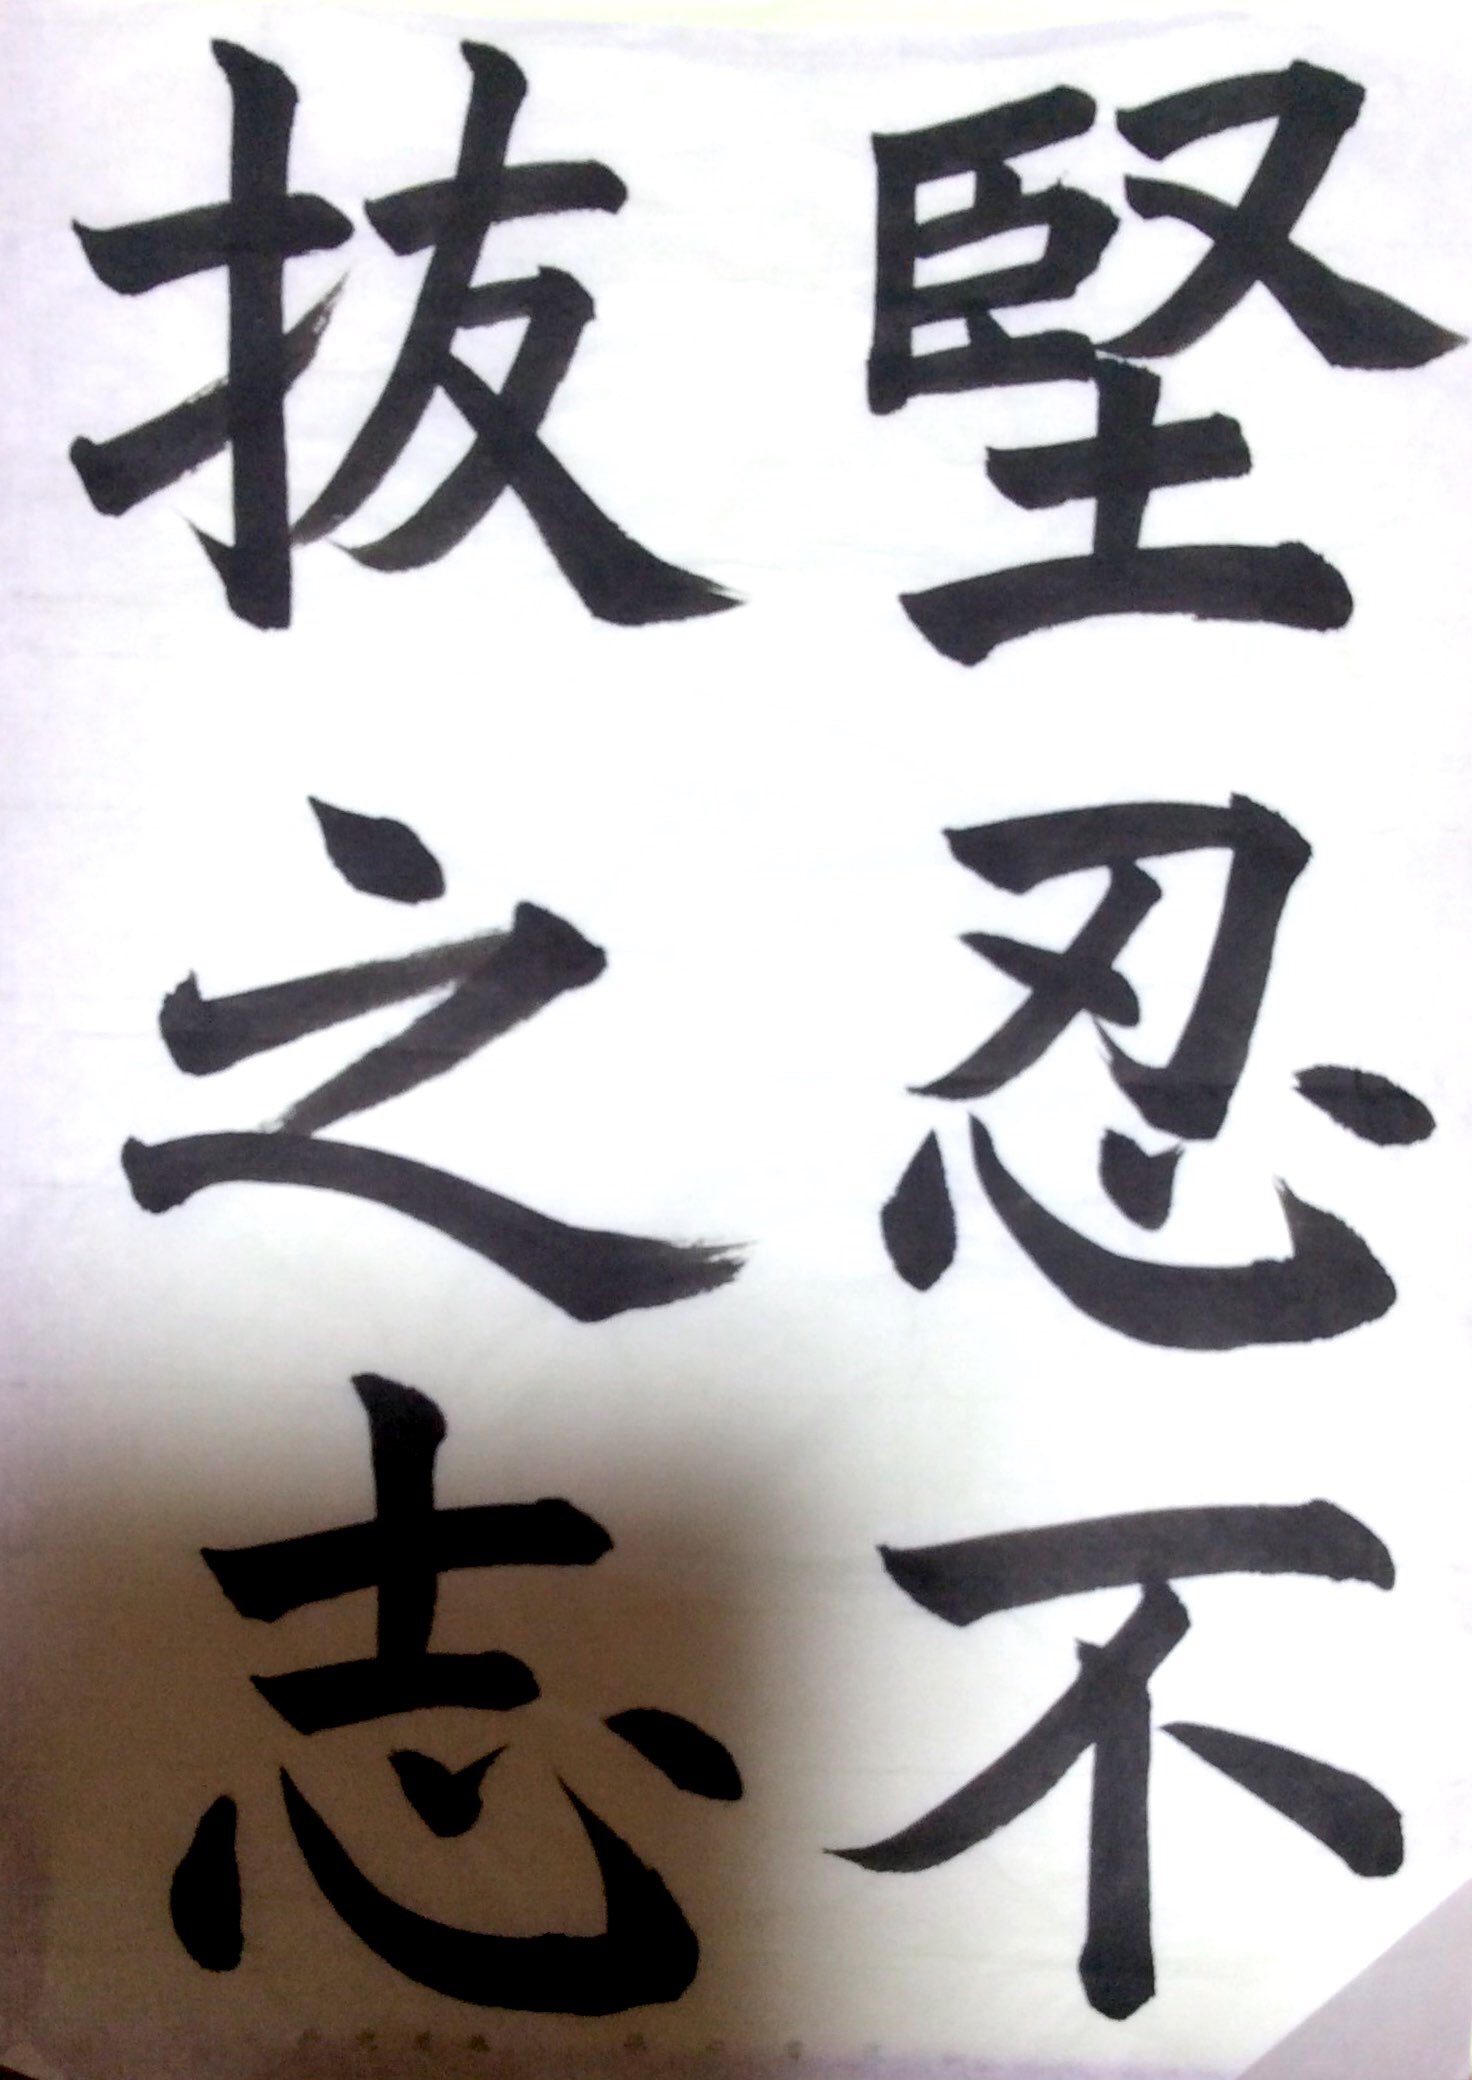 堅忍不
抜之志